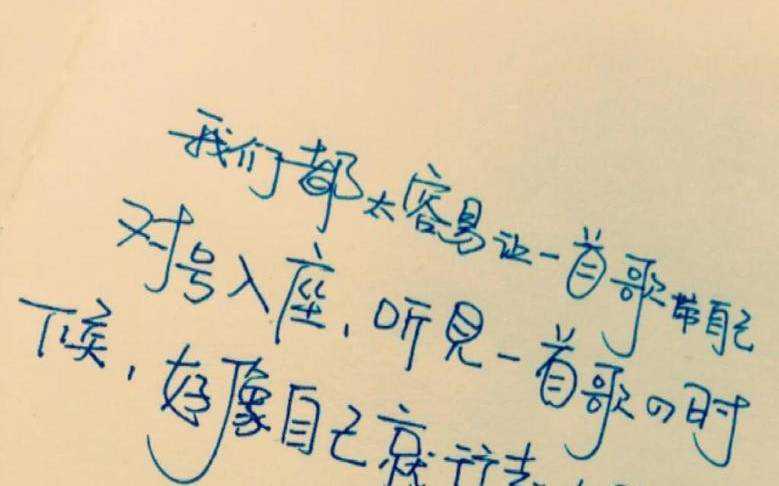 我们都太容易让一首歌带自己
对号入座，听见一首歌的时
候，好像自己就